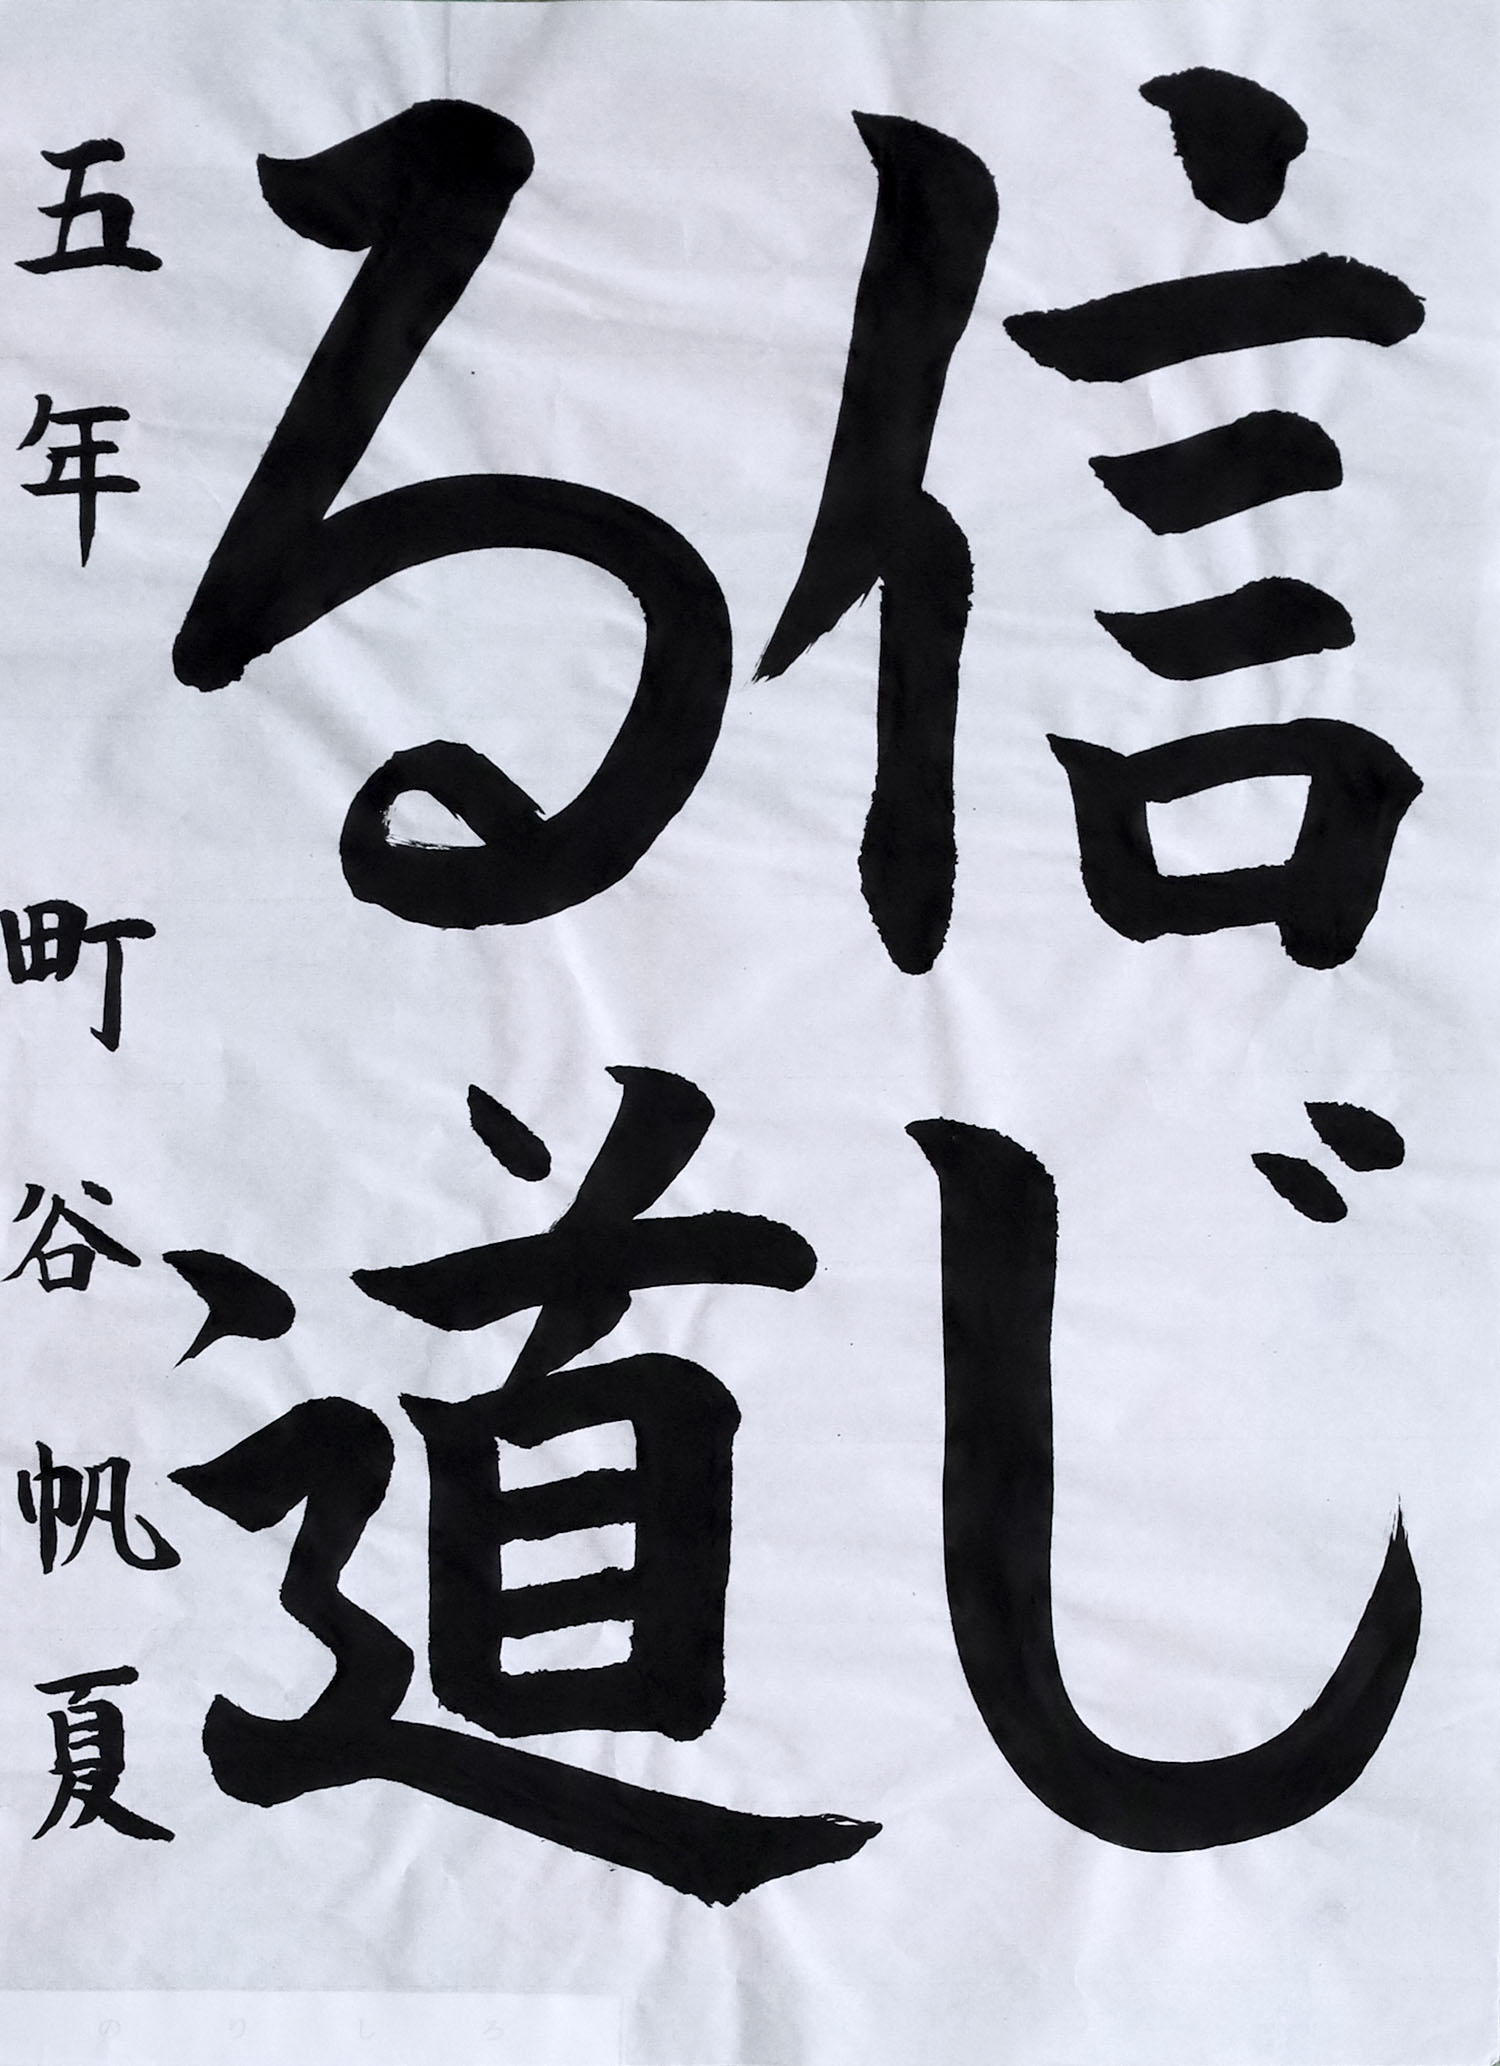 信じ
る道
五年 町谷帆夏
のりしろ